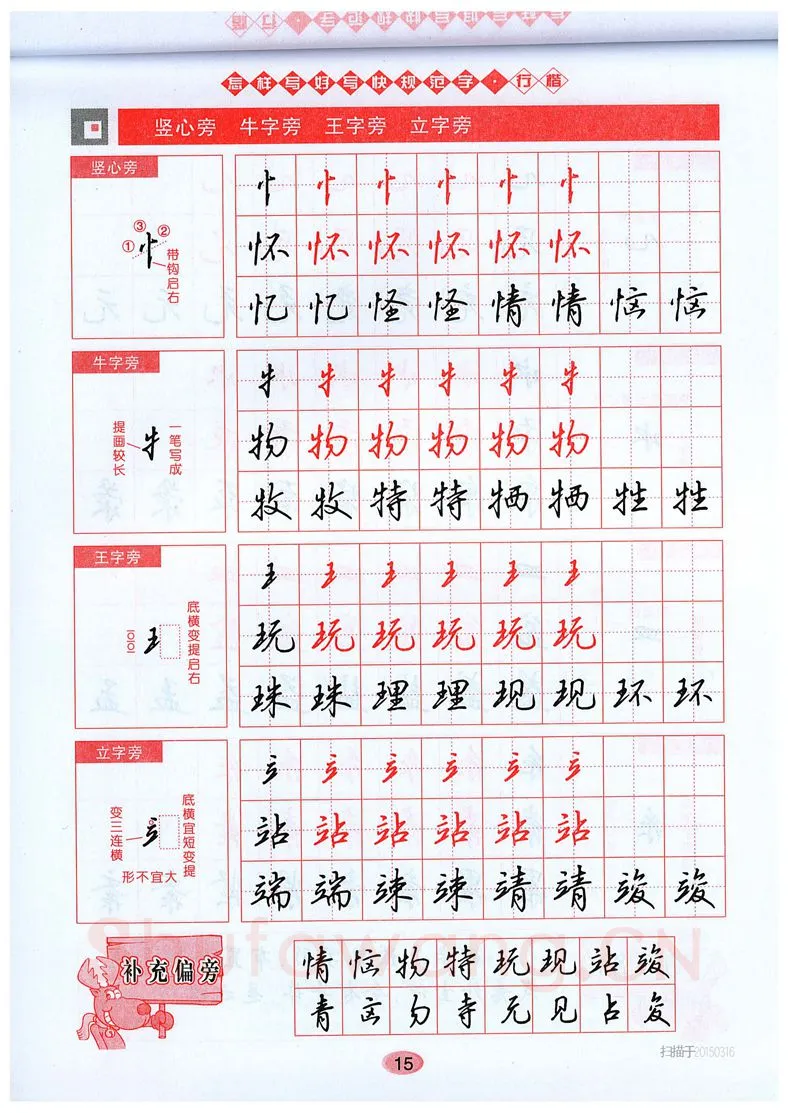 怎样写好写快规范字·行楷
竖心旁 牛字旁 王字旁 立字旁
竖心旁
① ③ ② 忄
带钩启右
忄 忄 忄 忄 忄 忄
怀 怀 怀 怀 怀 怀
忆 忆 怪 怪 情 情 恼 恼
牛字旁
提画较长
牜
一笔写成
牜 牜 牜 牜 牜 牜
物 物 物 物 物 物
牧 牧 特 特 牺 牺 牲 牲
王字旁
王
底横变提启右
王 王 王 王 王 王
玩 玩 玩 玩 玩 玩
珠 珠 理 理 现 现 环 环
立字旁
变三连横
立
底横宜短变提
形不宜大
立 立 立 立 立 立
站 站 站 站 站 站
端 端 竦 竦 靖 靖 竣 竣
补充偏旁
情 恼 物 特 玩 现 站 竣
青 㐫 勿 寺 元 见 占 夋
Shufawang.CN
扫描于20150316
15